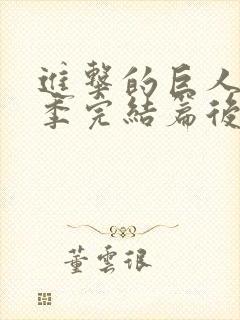 進擊的巨人
季完結篇後
董雲很